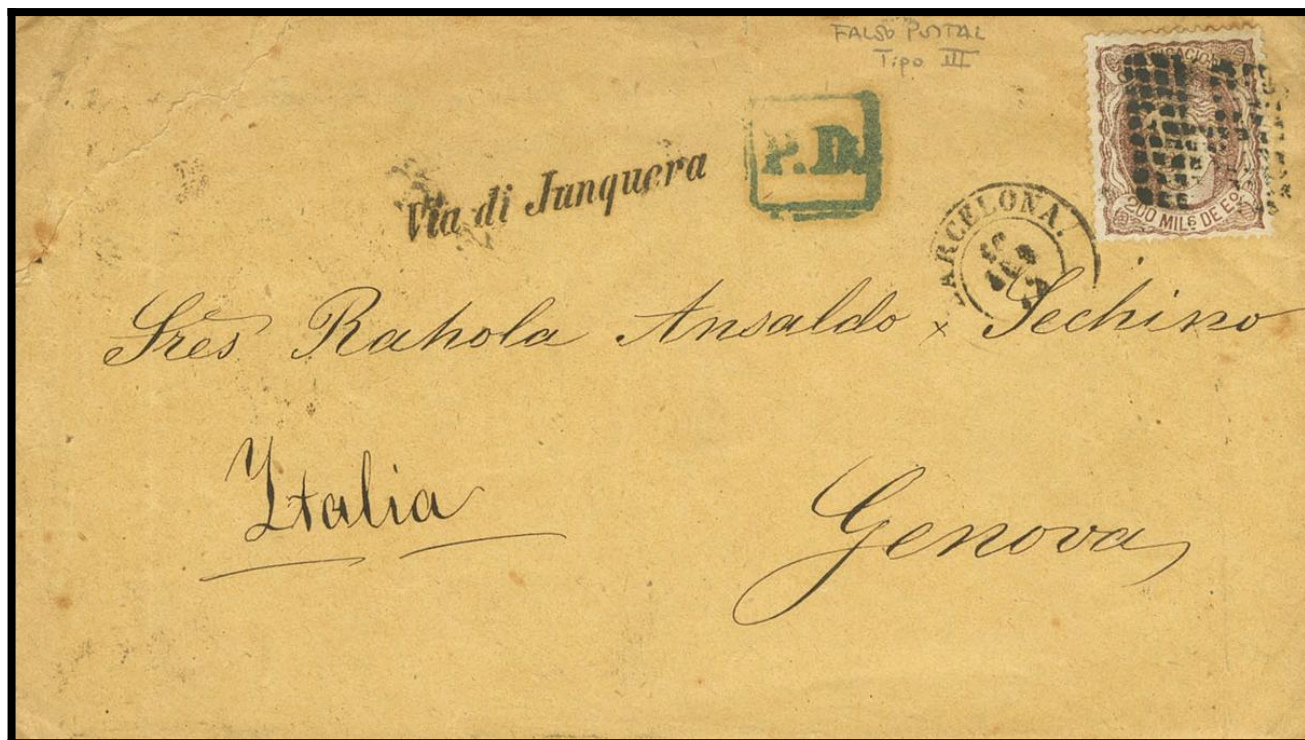 FALSO POSTAL
Tipo III
200 MILS DE Eo
P.D.
Via di Junquera
BARCELONA.
Sres Rahola Ansaldo x Sechino
Italia
Genova